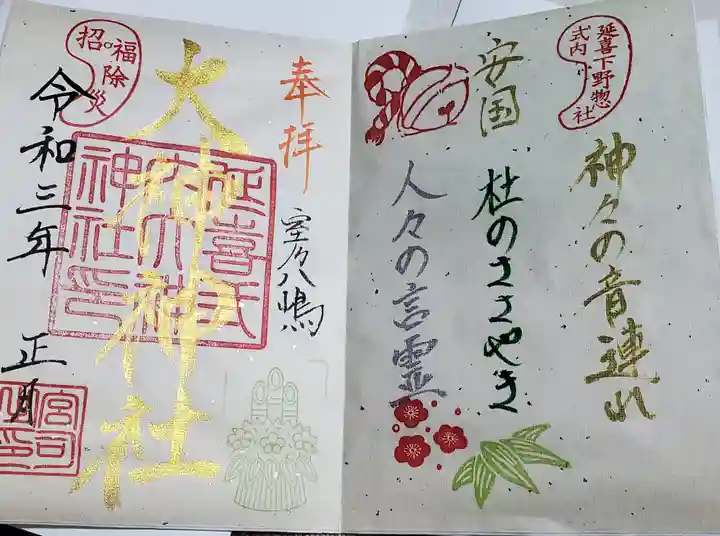 延喜下野惣社
式内
神々の音連れ
杜のささやき
安国
人々の言霊
奉拝
室乃八嶋
大神神社
延喜式
内大神
神社印
福除災
招
令和三年 正月
宮司
之印